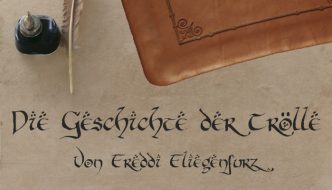 Die Geschichte der Trölle
Von Freddi Fliegenfurz